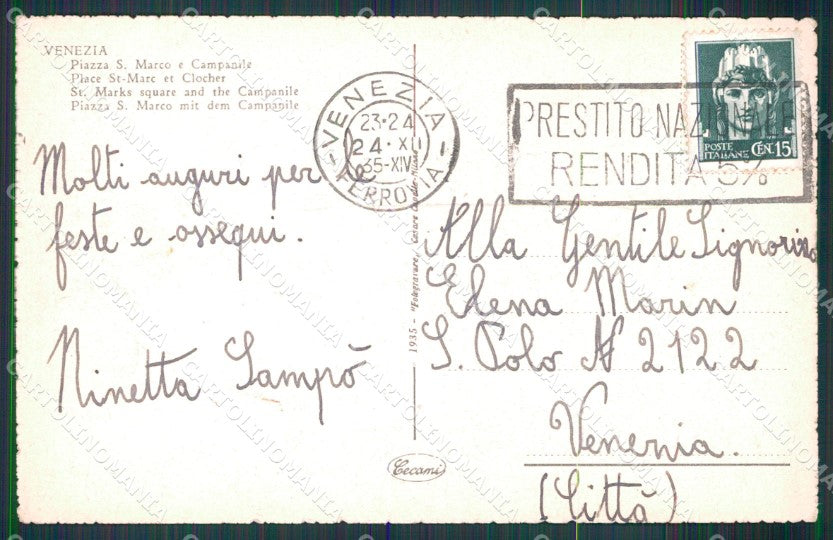 VENEZIA
Piazza S. Marco e Campanile
Place St-Marc et Clocher
St. Marks square and the Campanile
Piazza S. Marco mit dem Campanile
VENEZIA
23·24
24·XII
35-XIV
FERROVIA
PRESTITO NAZIONALE
RENDITA 5%
POSTE
ITALIANE
CEN. 15
Molti auguri per le
feste e ossequi.
Ninetta Sampò
Alla Gentile Signorina
Elena Marin
S. Polo N 2122
Venezia.
(Città)
1935 - "Fotogravure" Cesare
Cecami
CARTOLINOMANIA